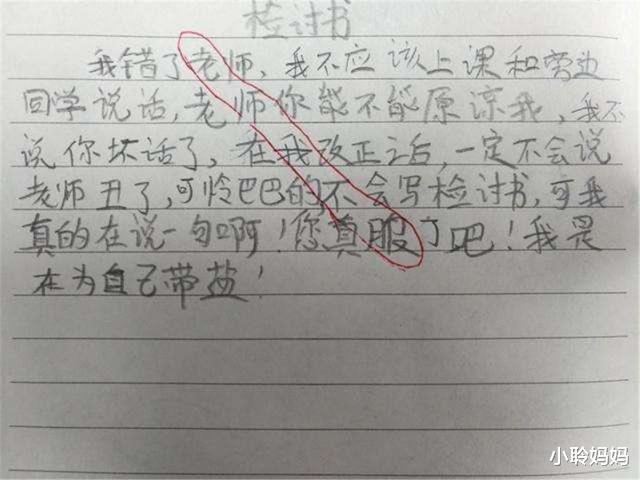 检讨书
我错了老师，我不应该上课和旁边
同学说话，老师你能不能原谅我，我不
说你坏话了，在我改正之后，一定不会说
老师丑了，可怜巴巴的不会写检讨书，可我
真的在说一句啊！您真服了吧！我是
在为自己带盐！
小聆妈妈